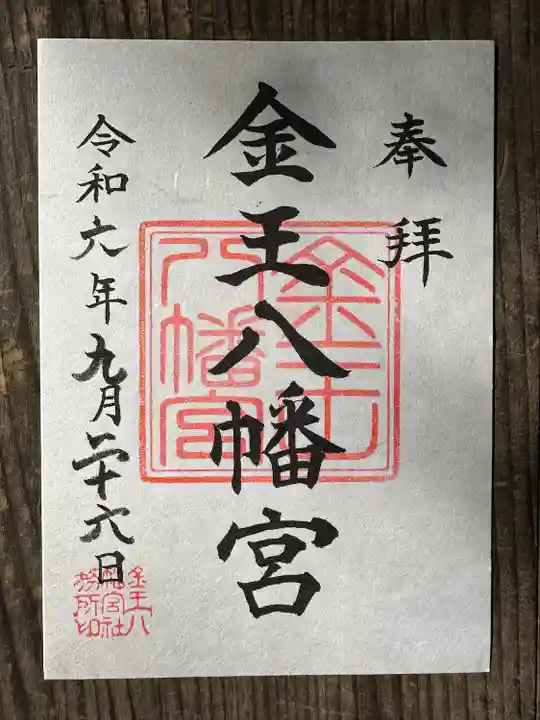 奉拝
金王八幡宮
金王八幡宮
令和六年九月二十六日
金王八
幡宮社
務所印